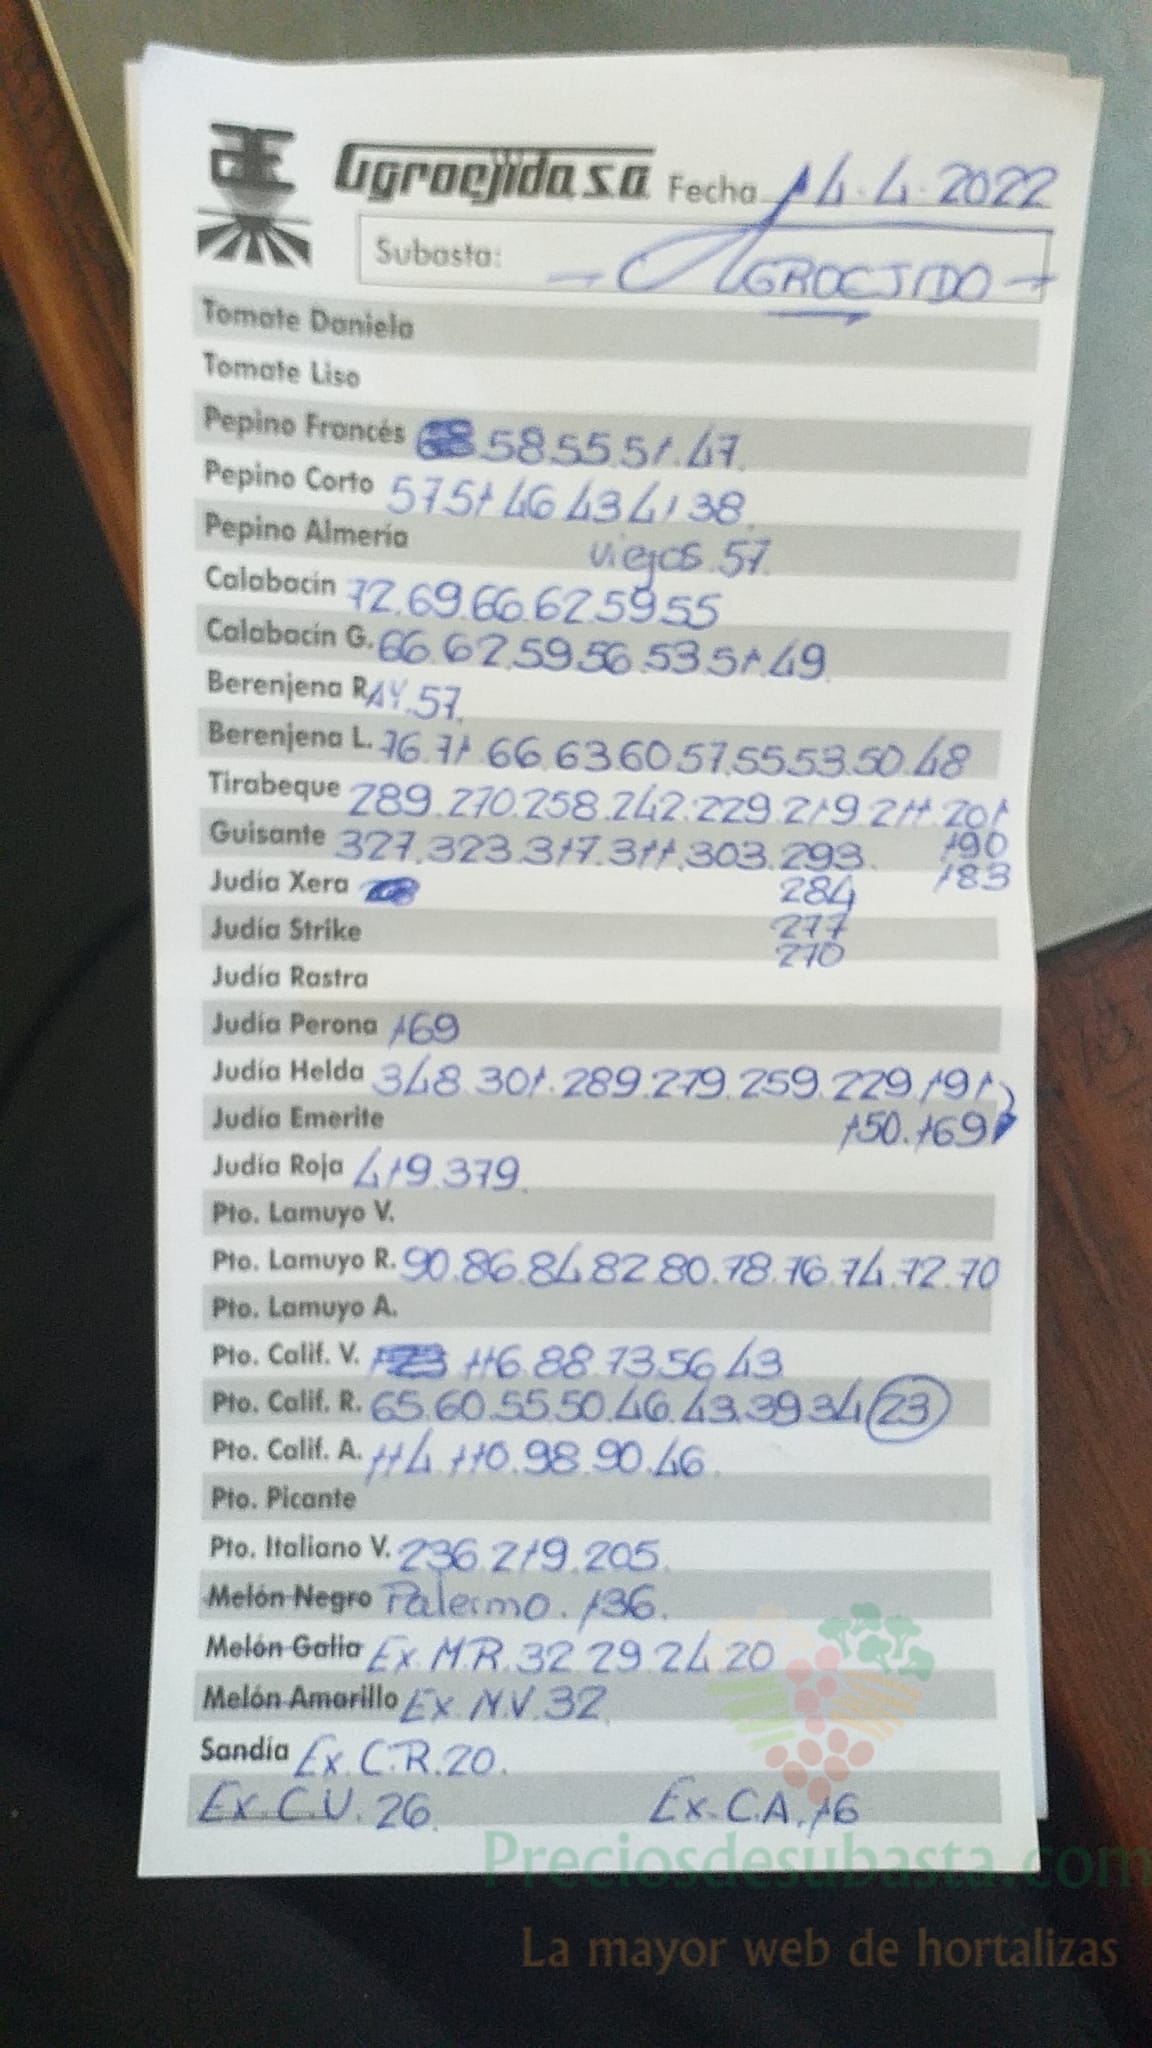 Agroejido, s.a. Fecha 14.4.2022
Subasta: - AGROEJIDO -
Tomate Daniela
Tomate Liso
Pepino Francés 58.55.51.47.
Pepino Corto 57 51 46 43 41 38.
Pepino Almería viejos.57.
Calabacín 72.69.66.62.59 55
Calabacín G. 66.62.59.56.53.51.49
Berenjena RAY.57.
Berenjena L. 76.71.66.63.60.57.55.53.50.48
Tirabeque 289.270.258.242.229.219.211.201
190
Guisante 327.323.317.311.303.293.
183
Judía Xera 284
Judía Strike 277
270
Judía Rastra
Judía Perona 169
Judía Helda 348.301.289.279.259.229.191
Judía Emerite 150.169
Judía Roja 419.379.
Pto. Lamuyo V.
Pto. Lamuyo R. 90.86.84.82.80.78.76.74.72.70
Pto. Lamuyo A.
Pto. Calif. V. 116.88.73.56.43
Pto. Calif. R. 65.60.55.50.46.43.39 34 23
Pto. Calif. A. 114.110.98.90.46.
Pto. Picante
Pto. Italiano V. 236.219.205.
Melón Negro Palermo. 136.
Melón Galia Ex.M.R.32 29.24 20
Melón Amarillo Ex.M.V.32.
Sandía Ex.C.R.20.
Ex.C.V. 26. Ex.C.A.16
Preciosdesubasta.com
La mayor web de hortalizas